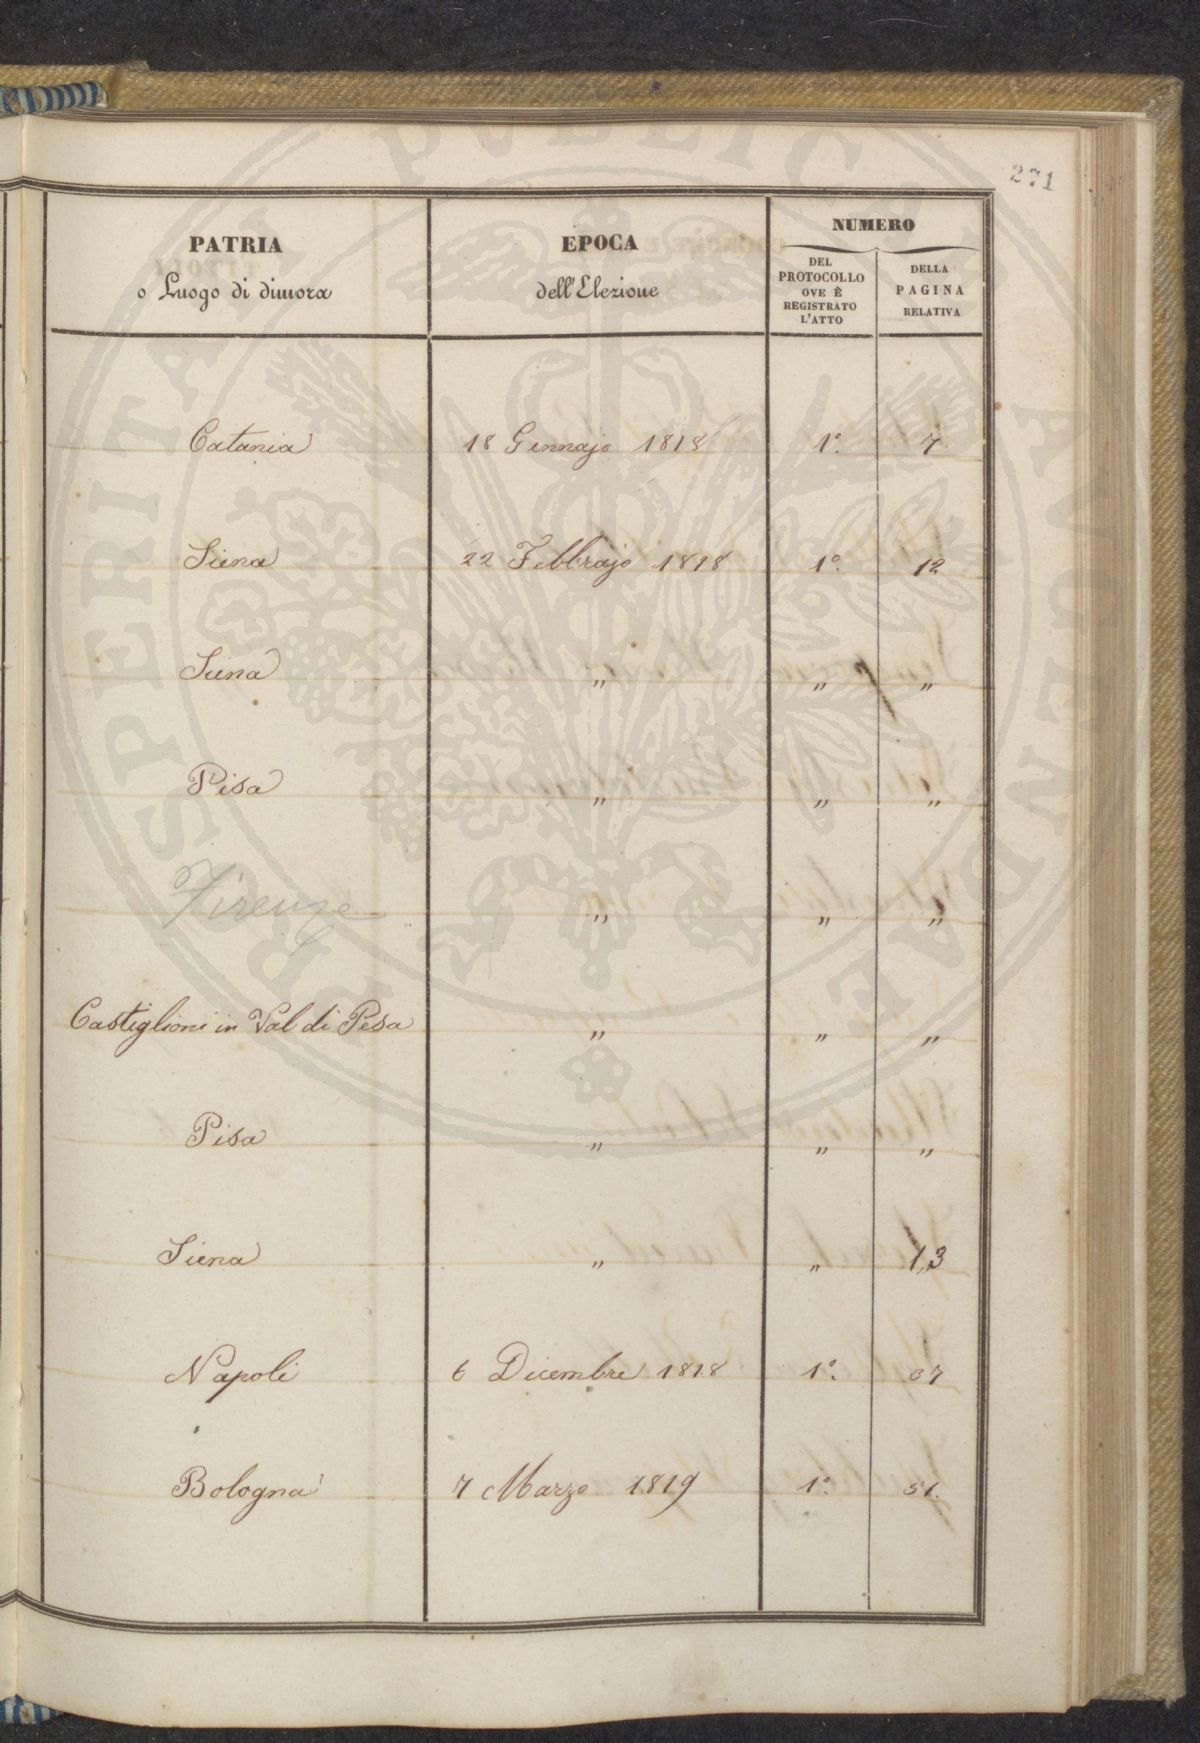 271
PATRIA
o Luogo di dimora
EPOCA
dell'Elezione
NUMERO
DEL
PROTOCOLLO
OVE È
REGISTRATO
L'ATTO
DELLA
PAGINA
RELATIVA
Catania 18 Gennajo 1818 1º. 7
Siena 22 Febbrajo 1818 1º. 12
Siena " " "
Pisa " " "
Firenze " " "
Castiglioni in Val di Pesa " " "
Pisa " " "
Siena " " 13
Napoli 6 Dicembre 1818 1º. 37
Bologna 7 Marzo 1819 1º. 51.
PROSPERITATI PUBLICAE AUGENDAE